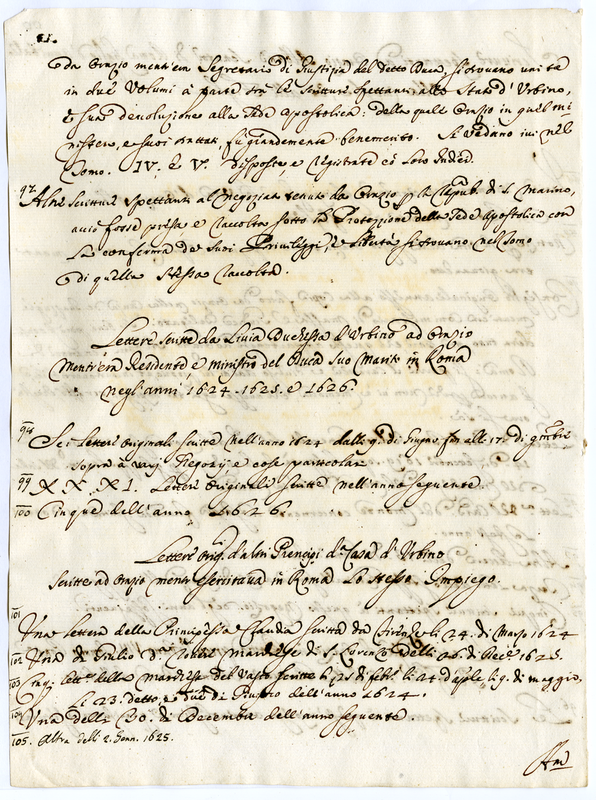 da Orazio mentr'era Segretario di Giustizia del detto Duca, si trovano unite
in due Volumi à parte trà le scritture spettanti allo Stato d'Urbino,
e sua devoluzione alla Sede Apostolica: della quale Orazio in quel mi-
nistero, e suoi trattati, fù grandemente benemerito. Si vedano ivi nel
Tomo. IV. e V. disposte, e registrate co' loro Indici.
97. Altre Scritture spettanti al Negoziato tenuto da Orazio la Repub. di S. Marino,
acciò fosse presa e raccolta sotto la Protezzione della Sede Apostolica con
la conferma de' suoi Privileggi, e libertà si trovano nel Tomo
di quella stessa raccolta.
Lettere scritte da Livia Duchessa d'Urbino ad Orazio
mentr'era Residente e ministro del Duca suo Marito in Roma
negl'anni 1624. 1625. e 1626.
98 Sei lettere originali scritte nell'anno 1624 dalli 9. di Giugno fin alli 17. di 9mbre
sopra à varj Negozij e cose particolari
99 XX. XI. Lettere Originali scritte nell'anno seguente.
100 Cinque dell'anno 1626.
Lettere orig. d'altri Prencipi d. Casa d'Urbino
scritte ad Orazio mentre esercitava in Roma lo stesso Impiego.
101 Una lettera della Principessa Claudia scritta da li 24. di Marzo 1624
102 Una di Giulio della Marchese di S. Lorenzo delli 26. di Dece. 1625.
103 lett. della Marchese del Vasto scritte li 20. di febr. li 24. d'Aple li 9. di maggio,
li 23. detto, e due di dell'anno 1624.
104 Una delli 30. di Decembre dell'anno seguente.
105. Altra delli 2. Genn. 1625.